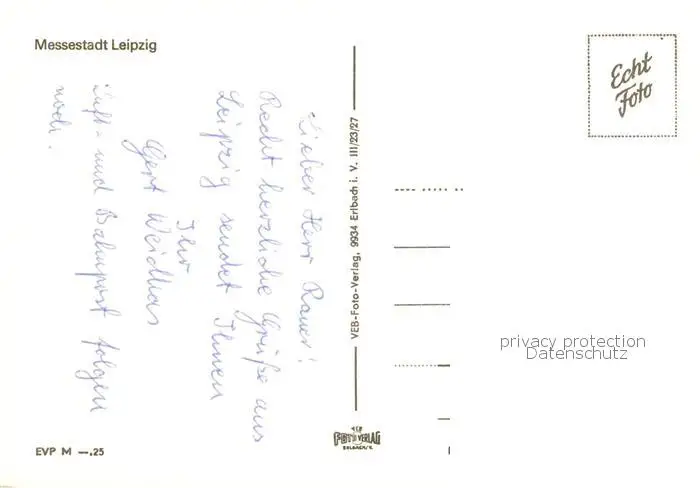 Messestadt Leipzig
Lieber Herr Rauer!
Recht herzliche Grüße aus
Leipzig sendet Ihnen
Ihr
Gert Weidhas
Luft- und Bahnpost folgen
noch.
VEB-Foto-Verlag, 9934 Erlbach i. V. III/23/27
Echt
Foto
privacy protection
Datenschutz
EVP M —.25
VEB
FOTO VERLAG
ERLBACH/V.